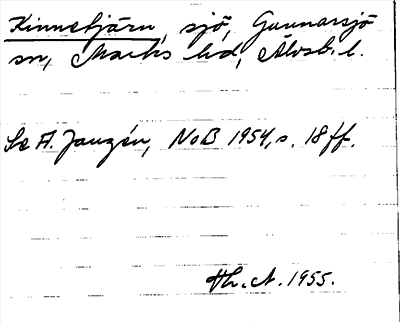 Kinnebjärn, sjö, Gunnarsjö
sn, Marks hd, Älvsb. l.
Se A. Janzén, NoB 1954, s. 18 ff.
1955.